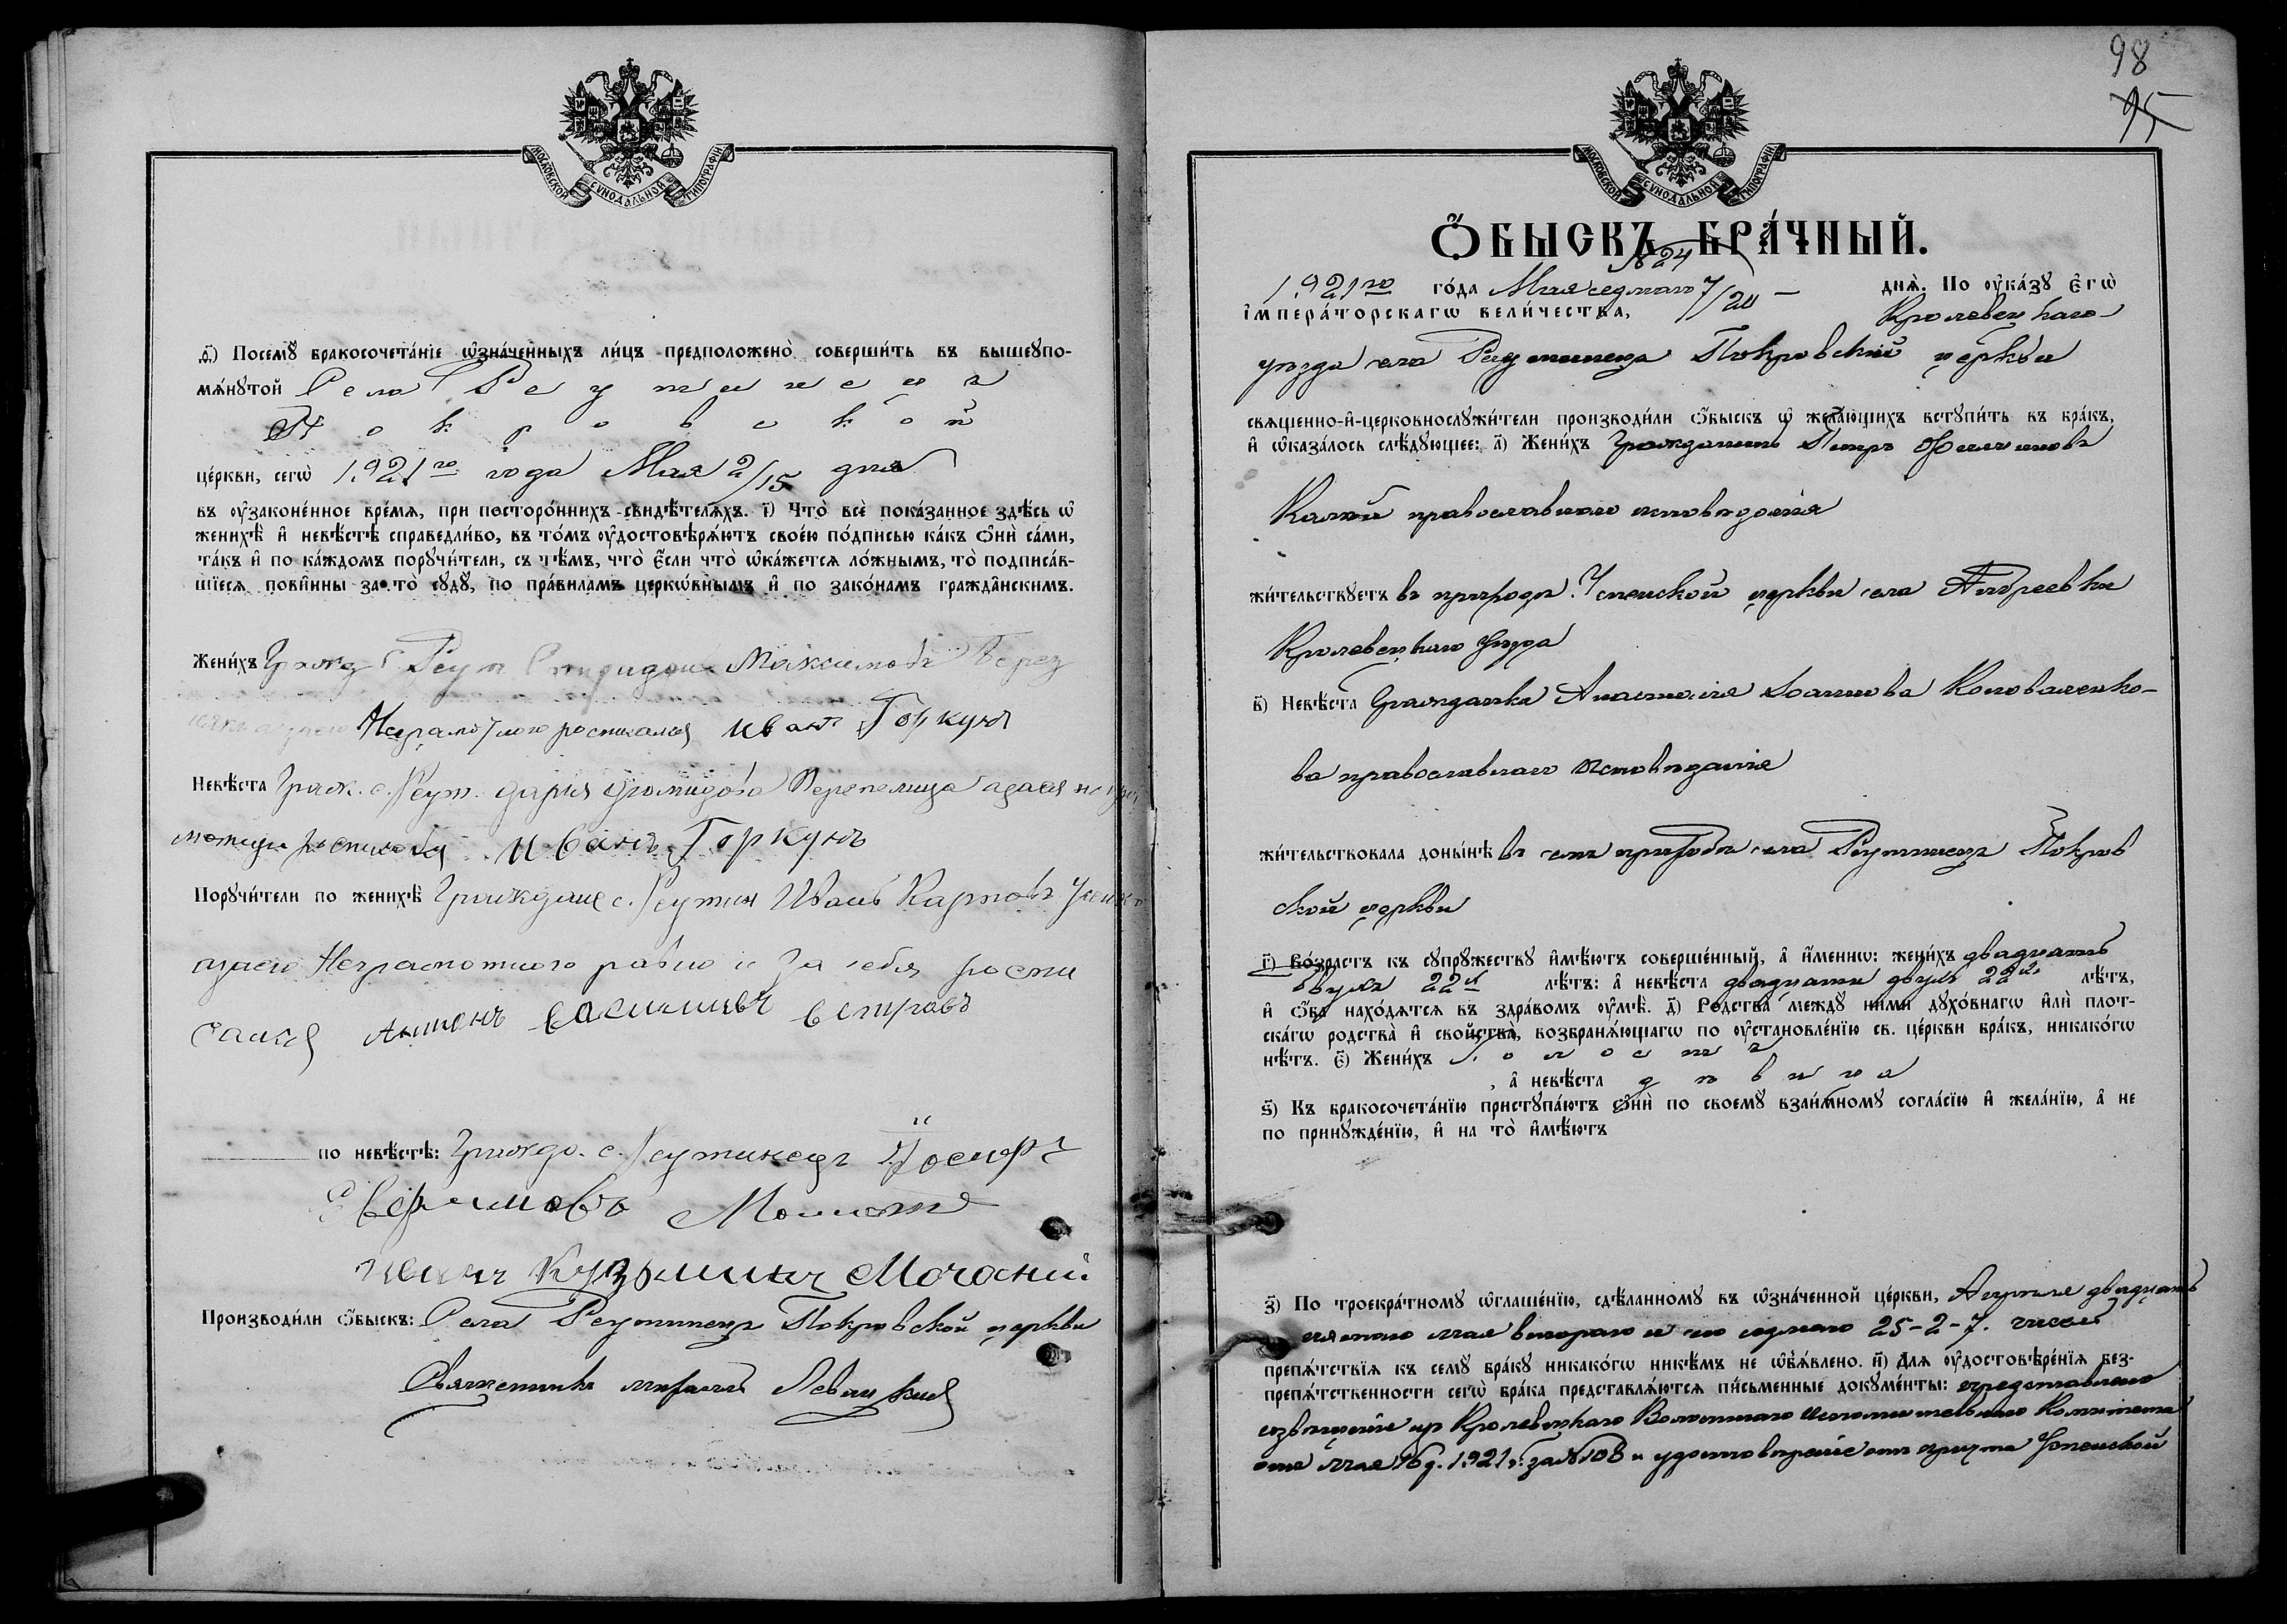 МОСКОВСКОЙ СѴНОДАЛЬНОЙ ТИПОГРАФІИ
ѳ҃) Посемꙋ̀ бракосочета́нїе ѡ҆зна́ченныхъ ли́цъ предположено̀ соверши́ть въ вышеꙋпо-
мѧ́нꙋтой Села Реутинецъ
Покровской
це́ркви, сегѡ̀ 1921го года Мая 2/15 дня
въ ᲂу҆зако́ненное вре́мѧ, при посторо́ннихъ свидѣ́телѧхъ. і҃) Что̀ всѐ пока́занное здѣ́сь ѡ҆
женихѣ̀ и҆ невѣ́стѣ справедли́во, въ то́мъ ᲂу҆достовѣрѧ́ютъ свое́ю по́дписью ка́къ ѻ҆нѝ са́ми,
та́къ и҆ по ка́ждомъ порꙋчи́тели, съ тѣ́мъ, что̀ є҆́сли что̀ ѡ҆ка́жетсѧ ло́жнымъ, то̀ подписа́в-
шїесѧ пови́нны за то̀ сꙋдꙋ̀, по пра́виламъ церкѡ́внымъ и҆ по зако́намъ гражда̂нскимъ.
Жени́хъ Гражд. с. Реут. Спиридонъ Максимовъ Берез
Неграмотного росписался Иванъ Горкунъ
Невѣ́ста Граж. с. Реут. Дарія Перепелица
Иванъ Горкунъ
Порꙋчи́тели по женихѣ̀ Граждане с. Реутин Иванъ Карповъ
Неграмотного равно и За себя роспи
сался Василиевъ
по невѣ́стѣ: Гражд. с. Реутинецъ Іосифъ
Иванъ Кузьмичъ
Производи́ли ѻ҆́быскъ: Села Реутинецъ Покровской церкви
Священникъ Левицкій
98
95
МОСКОВСКОЙ СѴНОДАЛЬНОЙ ТИПОГРАФІИ
Ѻ҆́БЫСКЪ БРА́ЧНЫЙ.
№ 24
1921го го́да Мая седмаго 7/20 – днѧ̀. По ᲂу҆ка́зꙋ Є҆гѡ̀
І҆мпера́торскагѡ вели́чества, Кролевецкаго
уѣзда села Реутинецъ Покровской церкви
свѧще́нно-и҆-церковнослꙋжи́тели производи́ли ѻ҆́быскъ ѡ҆ жела́ющихъ встꙋпи́ть въ бра́къ,
и҆ ѡ҆каза́лось слѣ́дꙋющее: а҃) Жени́хъ Гражданинъ Петръ Филипповъ
православнаго исповѣданія
жи́тельствꙋетъ въ приходѣ Успенской церкви села Андреевки
Кролевецкаго уѣзда
в҃) Невѣ́ста Гражданка Анастасія Іоаннова Коноваленко-
ва православнаго исповѣданія
жи́тельствовала доны́нѣ въ семъ приходѣ села Реутинецъ Покров
ской церкви
г҃) Во́зрастъ къ сꙋпрꙋ́жествꙋ и҆мѣ́ютъ соверше́нный, а҆ и҆́меннѡ: жени́хъ двадцать
двухъ 22х лѣ́тъ: а҆ невѣ́ста двадцати двухъ 22х лѣ́тъ,
и҆ ѻ҆́ба нахо́дѧтсѧ въ здра́вомъ ᲂу҆мѣ̀. д҃) Родства̀ междꙋ̀ ни́ми дꙋхо́внагѡ и҆лѝ плот-
ска́гѡ родства̀ и҆ свойства̀, возбранѧ́ющагѡ по ᲂу҆становле́нїю св. це́ркви бра́къ, никако́гѡ
нѣ́тъ. є҃) Жени́хъ холостъ
, а҆ невѣ́ста дѣвица
ѕ҃) Къ бракосочета́нїю пристꙋпа́ютъ ѻ҆нѝ по своемꙋ̀ взаи́мномꙋ согла́сїю и҆ жела́нїю, а҆ не
по принꙋжде́нїю, и҆ на то̀ и҆мѣ́ютъ
з҃) По троекра́тномꙋ ѡ҆глаше́нїю, сдѣ́ланномꙋ въ ѡ҆зна́ченной це́ркви, Апрѣля двадцать
пятаго мая втораго и седмаго 25-2-7. числа
препѧ́тствїѧ къ семꙋ̀ бра́кꙋ никако́гѡ никѣ́мъ не ѡ҆б̾ѧ́влено. и҃) Длѧ ᲂу҆достовѣре́нїѧ без-
препѧ́тственности сегѡ̀ бра́ка представлѧ́ютсѧ пи́сьменные докꙋме́нты: предтавлено
извѣщеніе изъ Кролевецкаго Волостнаго Исполнительнаго Комитета
отъ мая 16 д. 1921 г. за № 108 и удостовѣреніе отъ причта Успенской